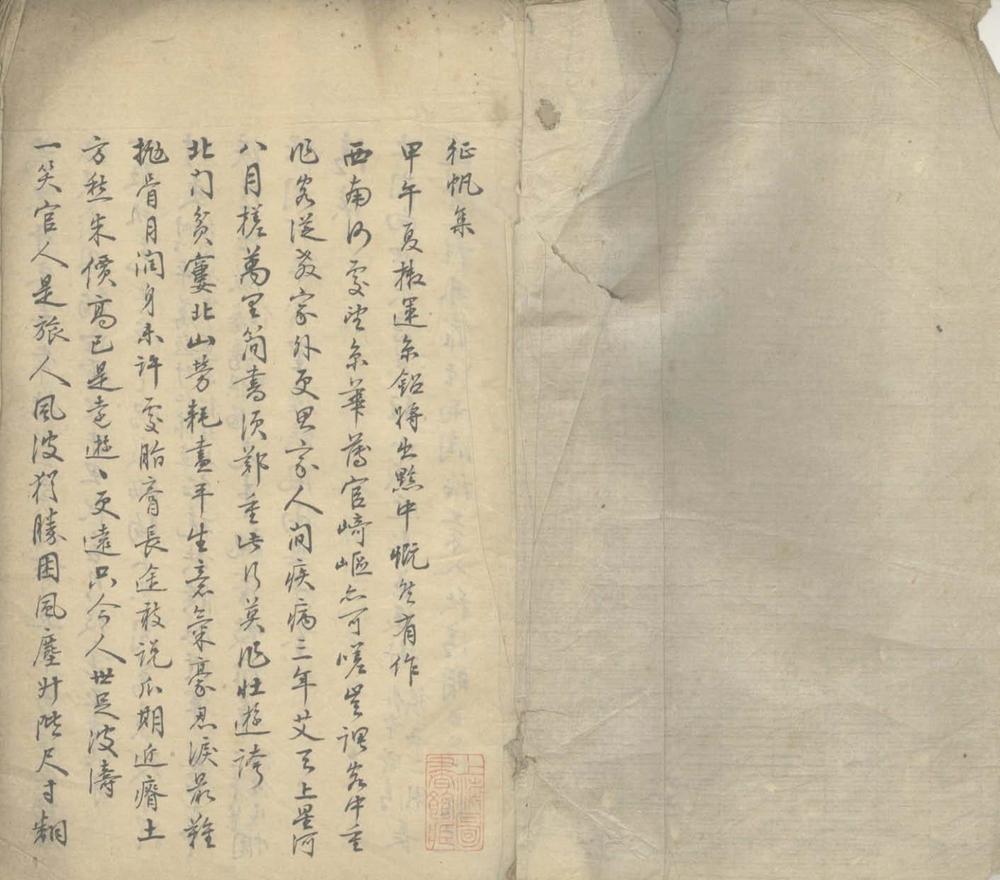 征帆集
甲午夏檄運京鉛將出黔中慨然有作
西南何處望京華薄宦崎嶇亦可嗟豈謂客中重
作客從教家外更思家人間疾病三年艾天上星河
八月槎萬里簡書須鄭重此行莫作壯遊誇
北門貧窶北山勞耗盡平生意氣豪忍淚最難
拋骨月潤身未許處脂膏長途敢說瓜期近瘠土
方愁米價高已是遠遊ヽ更遠只今人世足波濤
一笑官人是旅人風波猶勝困風塵升階尺寸翻